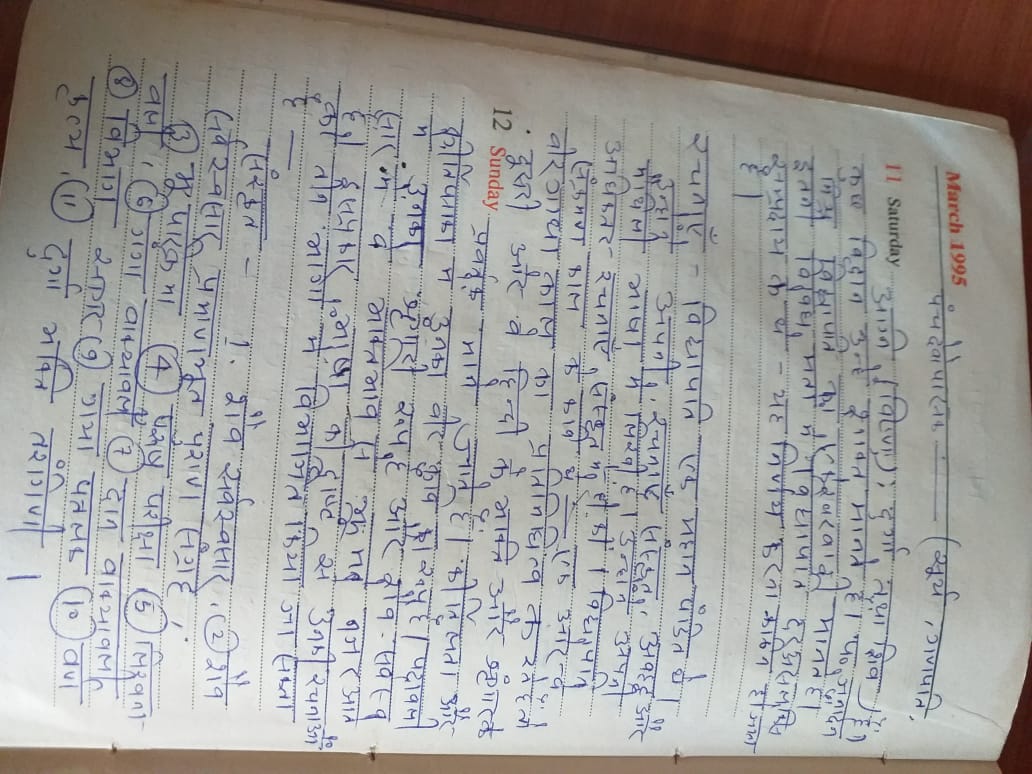 March 1995
पंचदेवोपासक — (सूर्य, गणपति,
11 Saturday अग्नि (विष्णु), दुर्गा तथा शिव)
कुछ विद्वान उन्हें वैष्णव मानते हैं। पं० जनार्दन
मिश्र विद्यापति को एकेश्वरवादी मानते हैं।
इतने विविध मत में विद्यापति
सम्प्रदाय के थे - यह निश्चय करना कठिन हो जाता
है।
रचनाएँ - विद्यापति एक महान पंडित थे।
उन्होंने अपनी रचनाएँ संस्कृत, अवहट्ट और
मैथिली भाषा में लिखी है। उन्होंने अपनी
अधिकतर रचनाएँ संस्कृत में ही की। विद्यापति
संक्रमण काल के कवि थे — एक ओर वे
वीरगाथा काल का प्रतिनिधित्व करते हैं तो
दूसरी ओर वे हिन्दी में भक्ति और श्रृंगार के
12 Sunday प्रवर्तक माने जाते हैं। कीर्तिलता और
कीर्तिपताका में उनका वीर कवि का रूप है। पदावली
में उनका श्रृंगारी रूप है और शैव सर्वस्व
सार में वे भक्तभाव से झुके नजर आते
हैं। इसप्रकार भाषा की दृष्टि से उनकी रचनाओं
को तीन भागों में विभाजित किया जा सकता
है —
संस्कृत - 1. शैव सर्वस्वसार, (2) शैव
सर्वस्वसार प्रमाणभूत पुराण संग्रह,
(3) भूपरिक्रमा (4) पुरुष परीक्षा (5) लिखना
वली, (6) गंगा वाक्यावली (7) दान वाक्यावली
(8) विभाग सार (9) गया पत्तलक (10) वर्ण
कृत्य, (11) दुर्गा भक्ति तरंगिणी।